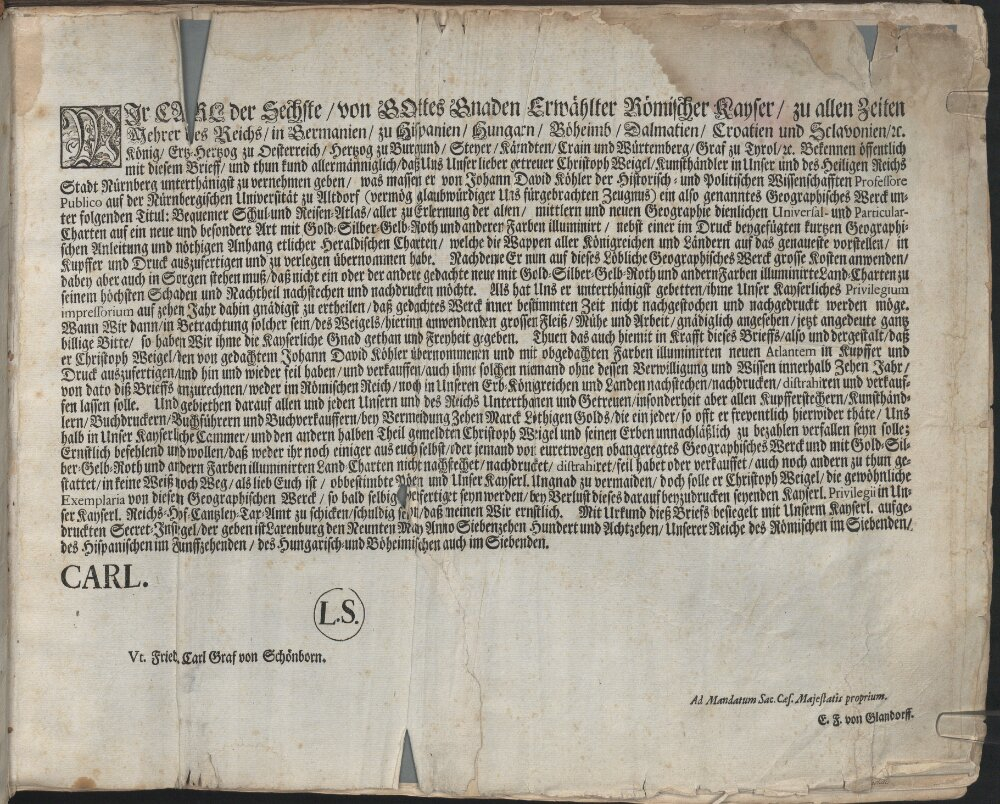 WIr CARL der Sechste / von GOttes Gnaden Erwählter Römischer Kayser / zu allen Zeiten
Mehrer des Reichs / in Germanien / zu Hispanien / Hungarn / Böheimb / Dalmatien / Croatien und Sclavonien /ꝛc.
König / Ertz-Hertzog zu Oesterreich / Hertzog zu Burgund / Steyer / Kärndten / Crain und Würtemberg / Graf zu Tyrol /ꝛc. Bekennen öffentlich
mit diesem Brieff / und thun kund allermänniglich / daß Uns Unser lieber getreuer Christoph Weigel / Kunsthändler in Unser und des Heiligen Reichs
Stadt Nürnberg unterthänigst zu vernehmen geben / was massen er von Johann David Köhler der Historisch- und Politischen Wissenschafften Professore
Publico auf der Nürnbergischen Universität zu Altdorf (vermög glaubwürdiger Uns fürgebrachten Zeugnus) ein also genanntes Geographisches Werck un-
ter folgenden Titul: Bequemer Schul-und Reisen-Atlas / aller zu Erlernung der alten / mittlern und neuen Geographie dienlichen Universal- und Particular-
Charten auf ein neue und besondere Art mit Gold-Silber-Gelb-Roth und anderen Farben illuminirt / nebst einer im Druck beygefügten kurtzen Geographi-
schen Anleitung und nöthigen Anhang etlicher Heraldischen Charten / welche die Wappen aller Königreichen und Ländern auf das genaueste vorstellen / in
Kupffer und Druck auszufertigen und zu verlegen übernommen habe. Nachdeme Er nun auf dieses Löbliche Geographisches Werck grosse Kosten anwenden /
dabey aber auch in Sorgen stehen muß / daß nicht ein oder der andere gedachte neue mit Gold-Silber-Gelb-Roth und andern Farben illuminirte Land-Charten zu
seinem höchsten Schaden und Nachtheil nachstechen und nachdrucken möchte. Als hat Uns er unterthänigst gebetten / ihme Unser Kayserliches Privilegium
impressorium auf zehen Jahr dahin gnädigst zu ertheilen / daß gedachtes Werck inner bestimmten Zeit nicht nachgestochen und nachgedruckt werden möge.
Wann Wir dann / in Betrachtung solcher sein / des Weigels / hierinn anwendenden grossen Fleiß / Mühe und Arbeit / gnädiglich angesehen / jetzt angedeute gantz
billige Bitte / so haben Wir ihme die Kayserliche Gnad gethan und Freyheit gegeben. Thuen das auch hiemit in Krafft dieses Brieffs / also und dergestalt / daß
er Christoph Weigel / den von gedachtem Johann David Köhler übernommenen und mit obgedachten Farben illuminirten neuen Atlantem in Kupffer und
Druck auszufertigen / und hin und wieder feil haben / und verkauffen / auch ihme solchen niemand ohne dessen Verwilligung und Wissen innerhalb Zehen Jahr /
von dato diß Brieffs anzurechnen / weder im Römischen Reich / noch in Unseren Erb-Königreichen und Landen nachstechen / nachdrucken / distrahiren und verkauf-
fen lassen solle. Und gebiethen darauf allen und jeden Unsern und des Reichs Unterthanen und Getreuen / insonderheit aber allen Kupfferstechern / Kunsthänd-
lern / Buchdruckern / Buchführern und Buchverkauffern / bey Vermeidung Zehen Marck Löthigen Golds / die ein jeder / so offt er freventlich hierwider thäte / Uns
halb in Unser Kayserliche Cammer / und den andern halben Theil gemeldten Christoph Weigel und seinen Erben unnachläßlich zu bezahlen verfallen seyn solle;
Ernstlich befehlend und wollen / daß weder ihr noch einiger aus euch selbst / oder jemand von euretwegen obangeregtes Geographisches Werck und mit Gold-Sil-
ber-Gelb-Roth und andern Farben illuminirten Land-Charten nicht nachstechet / nachdrucket / distrahiret / feil habet oder verkauffet / auch noch andern zu thun ge-
stattet / in keine Weiß noch Weg / als lieb Euch ist / obbestimbte Pöen und Unser Kayserl. Ungnad zu vermaiden / doch solle er Christoph Weigel / die gewöhnliche
Exemplaria von diesen Geographischen Werck / so bald selbige gefertiget seyn werden / bey Verlust dieses darauf beyzudrucken seyenden Kayserl. Privilegii in Un-
ser Kayserl. Reichs-Hof-Cantzley-Tax-Amt zu schicken / schuldig seyn / daß meinen Wir ernstlich. Mit Urkund dieß Briefs besiegelt mit Unserm Kayserl. aufge-
druckten Secret-Insigel / der geben ist Laxenburg den Neunten May Anno Siebenzehen Hundert und Achtzehen / Unserer Reiche des Römischen im Siebenden /
des Hispanischen im Funffzehenden / des Hungarisch-und Böheimischen auch im Siebenden.
CARL.
L.S.
Vt. Fried. Carl Graf von Schönborn.
Ad Mandatum Sac. Cæs. Majestatis proprium.
E. F. von Glandorff.